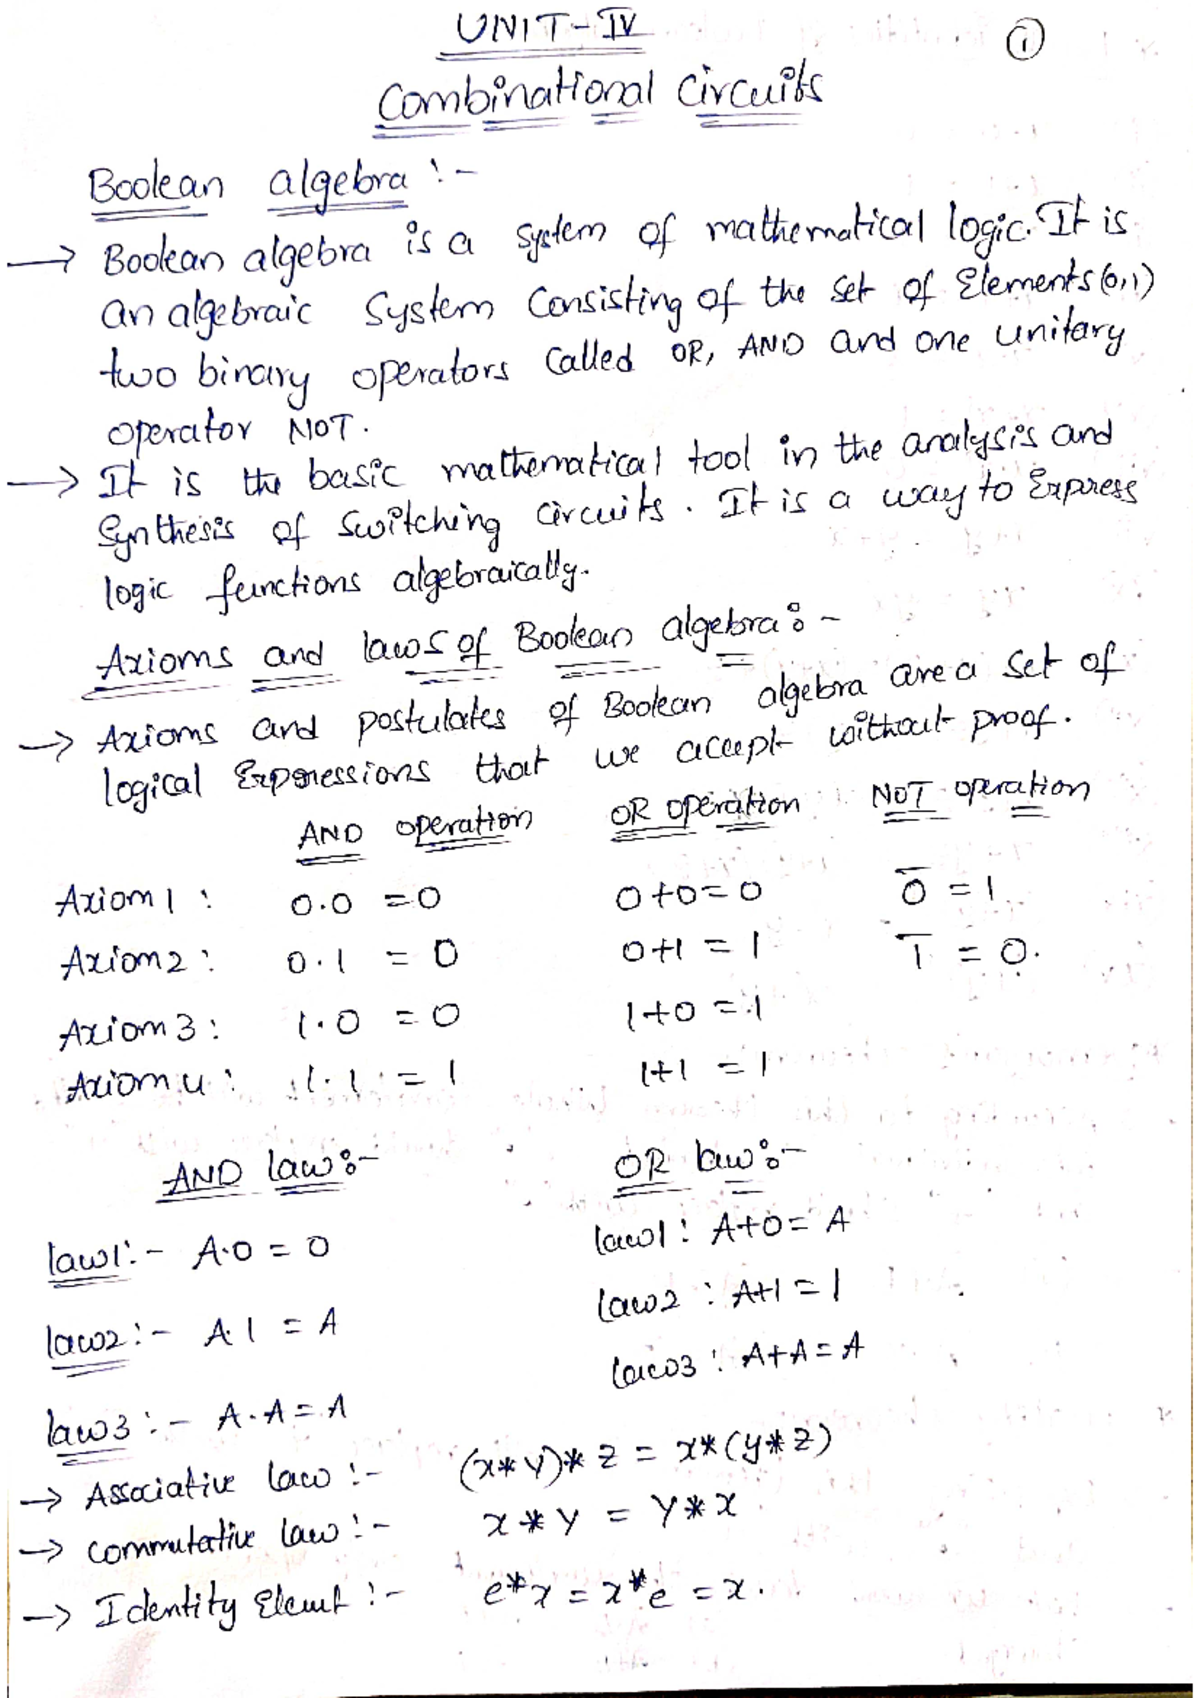 UNIT-IV
①
Combinational Circuits
Boolean algebra :-
→ Boolean algebra is a system of mathematical logic. It is
an algebraic System Consisting of the set of Elements (0,1)
two binary operators Called OR, AND and one unitary
operator NOT.
→ It is the basic mathematical tool in the analysis and
Synthesis of Switching Circuits. It is a way to Express
logic functions algebraically.
Axioms and laws of Boolean algebra :-
→ Axioms and postulates of Boolean algebra are a set of
logical Expressions that we accept without proof.
AND operation OR operation NOT operation
Axiom 1 : 0.0 = 0 0+0=0 0̅ = 1
Axiom 2 : 0.1 = 0 0+1 = 1 1̅ = 0.
Axiom 3 : 1.0 = 0 1+0 = 1
Axiom 4 : 1.1 = 1 1+1 = 1
AND law :- OR law :-
law1 :- A.0 = 0 law1 : A+0 = A
law2 :- A.1 = A law2 : A+1 = 1
law3 :- A.A = A law3 : A+A = A
→ Associative law :- (x*y)*z = x*(y*z)
→ commutative law :- x*y = y*x
→ Identity Elemt :- e*x = x*e = x.